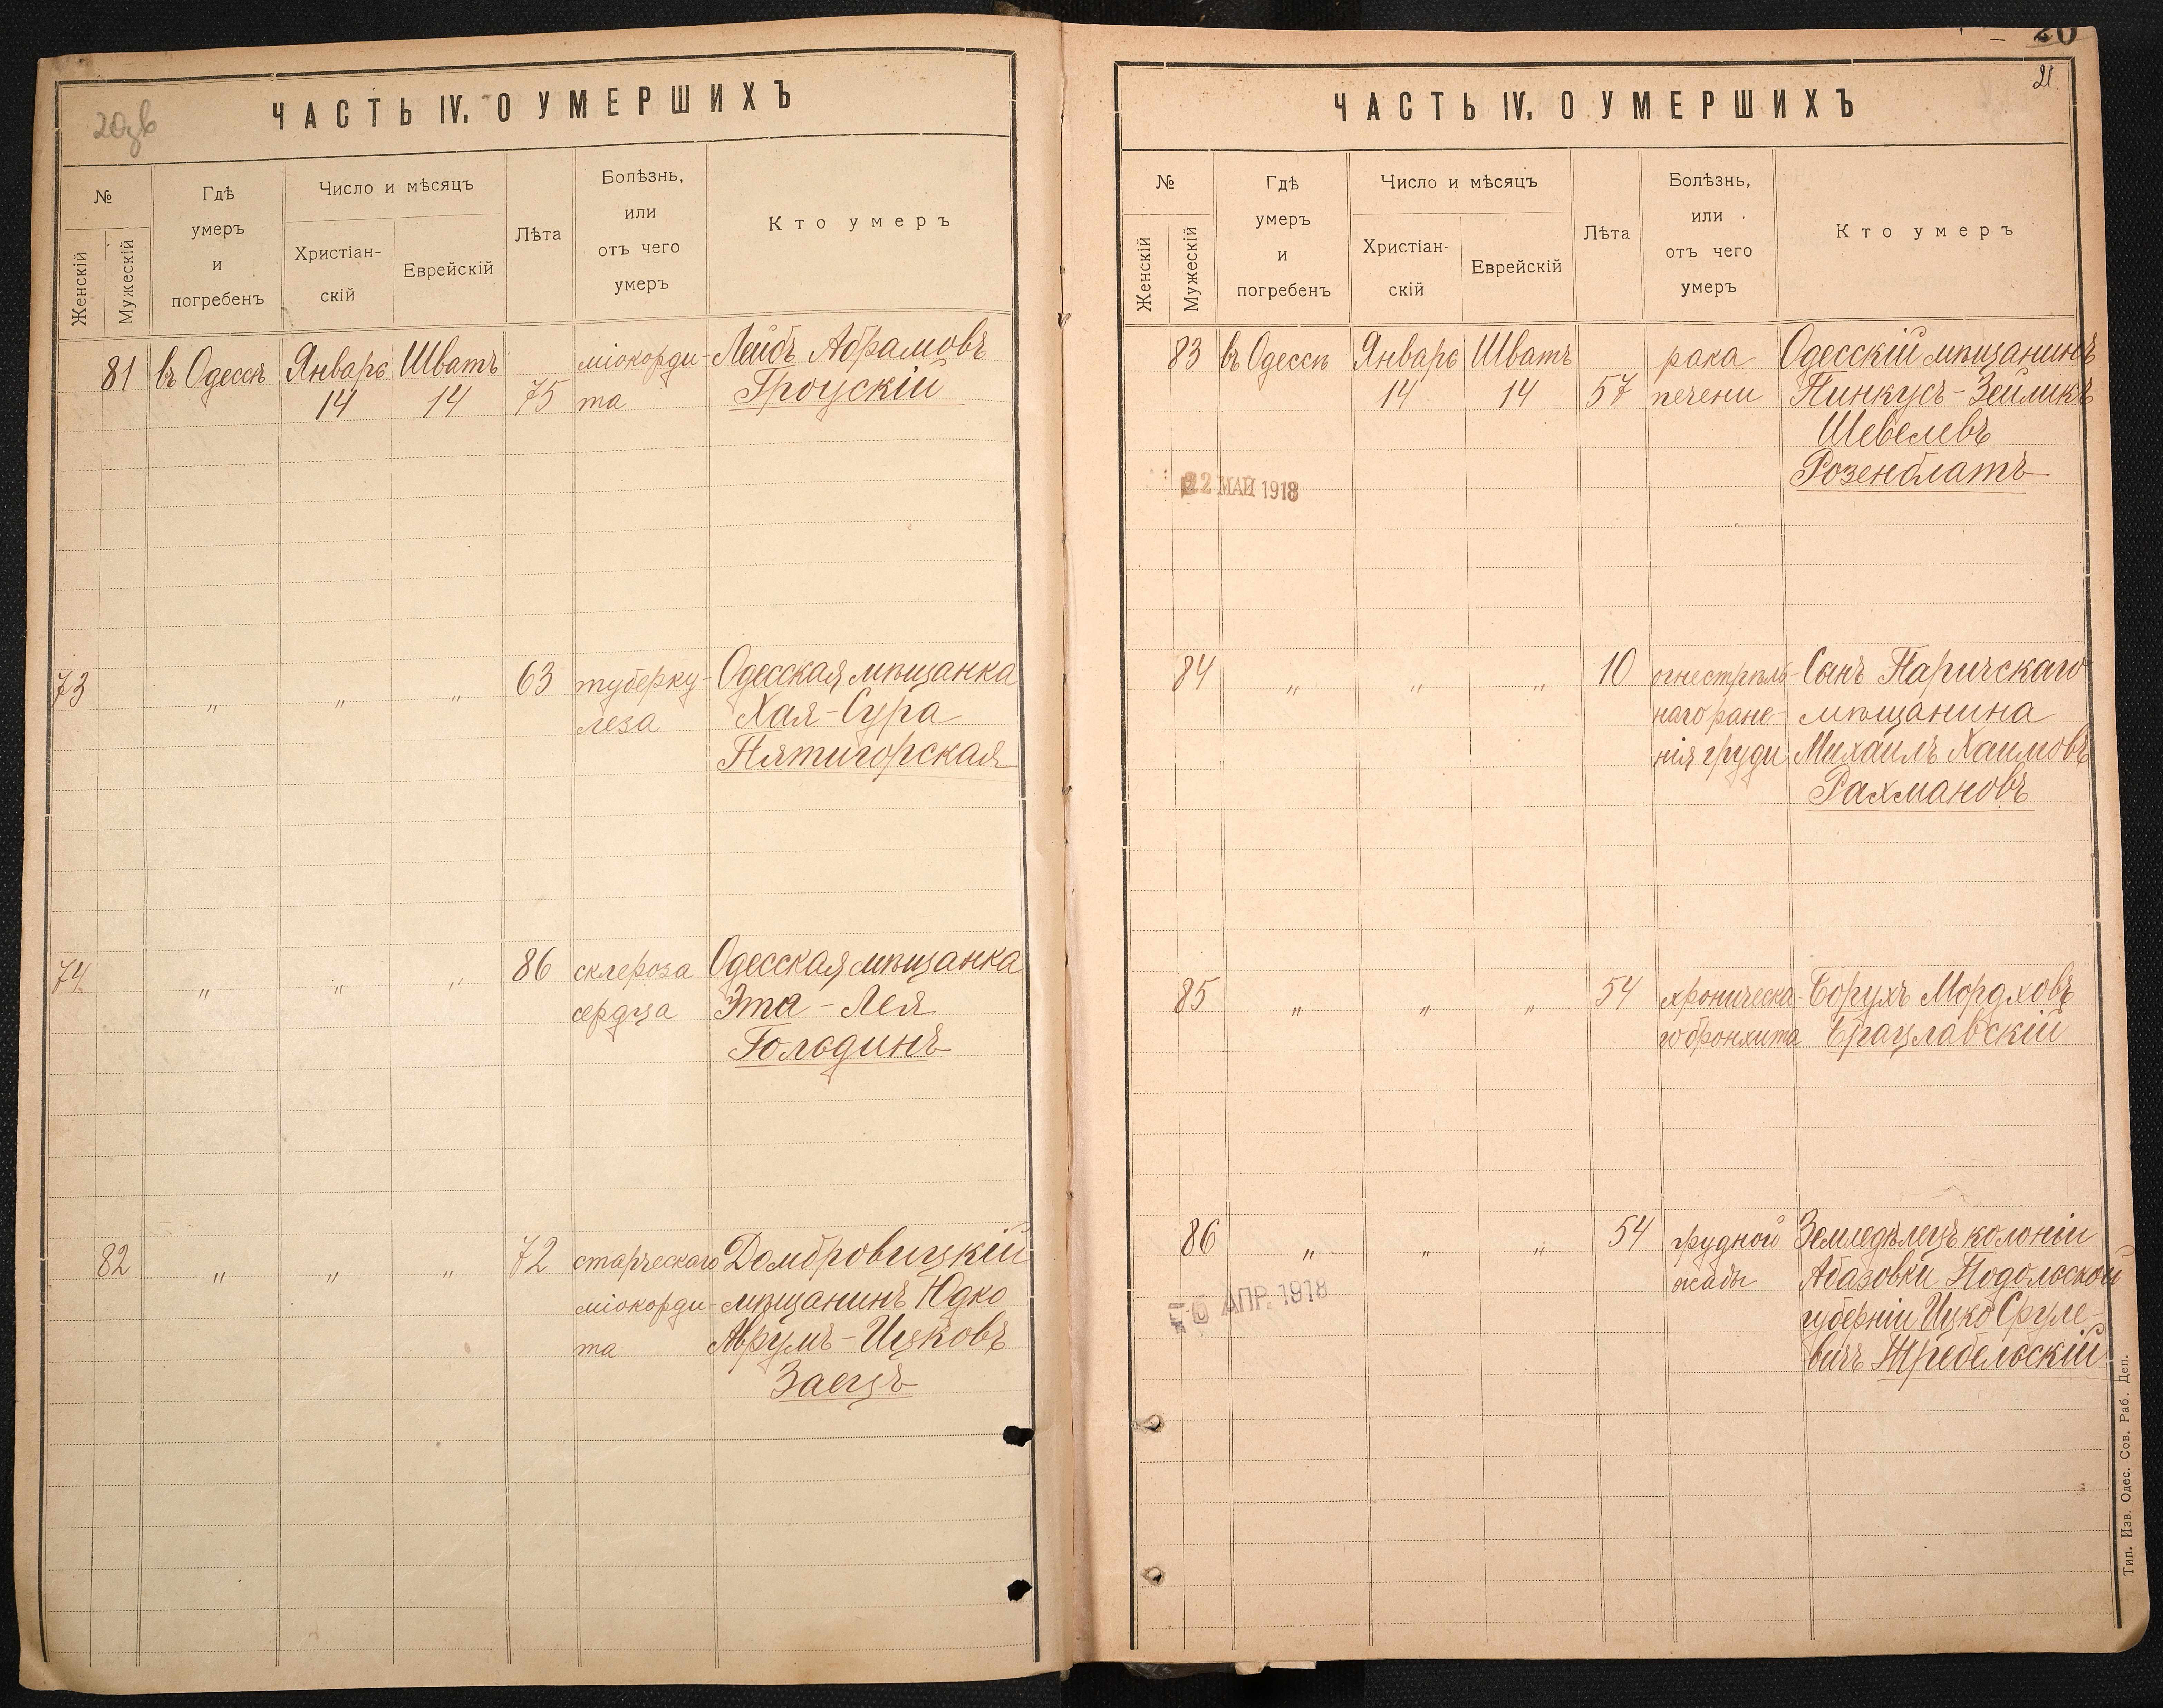 20об
ЧАСТЬ IV. О УМЕРШИХЪ
№
Женскій
Мужескій
Гдѣ
умеръ
и
погребенъ
Число и мѣсяцъ
Христіан-
скій
Еврейскій
Лѣта
Болѣзнь,
или
отъ чего
умеръ
Кто умеръ
81 въ Одессѣ Января Шватъ міокорди- Лейбъ Абрамовъ
14 14 75 та Троцскій
73 " " " 63 туберку- Одесская мѣщанка
леза Хая-Сура
Пятигорская
74 " " " 86 склероза Одесская мѣщанка
сердца Эта-Лея
Гольдинъ
82 " " " 72 старческаго Домбровицкій
міокорди- мѣщанинъ Юдко
та Аврумъ-Ицковъ
Заецъ
20
21
ЧАСТЬ IV. О УМЕРШИХЪ
№
Женскій
Мужескій
Гдѣ
умеръ
и
погребенъ
Число и мѣсяцъ
Христіан-
скій
Еврейскій
Лѣта
Болѣзнь,
или
отъ чего
умеръ
Кто умеръ
83 въ Одессѣ Января Шватъ рака Одесскій мѣщанинъ
14 14 57 печени Пинкусъ-Зейликъ
Шевелевъ
Розенблатъ
22 МАЙ 1918
84 " " " 10 огнестрѣль- Сынъ Паричскаго
наго ране- мѣщанина
нія груди Михаилъ Хаимовъ
Рахмановъ
85 " " " 54 хроническа- Борухъ Мордховъ
го бронхита Брацлавскій
86 " " " 54 грудной Земледѣлецъ колоніи
жабы Абазовки Подольской
губерніи Ицко Сруле-
вичъ Требельскій
АПР. 1918
Тип. Изв. Одес. Сов. Раб. Деп.